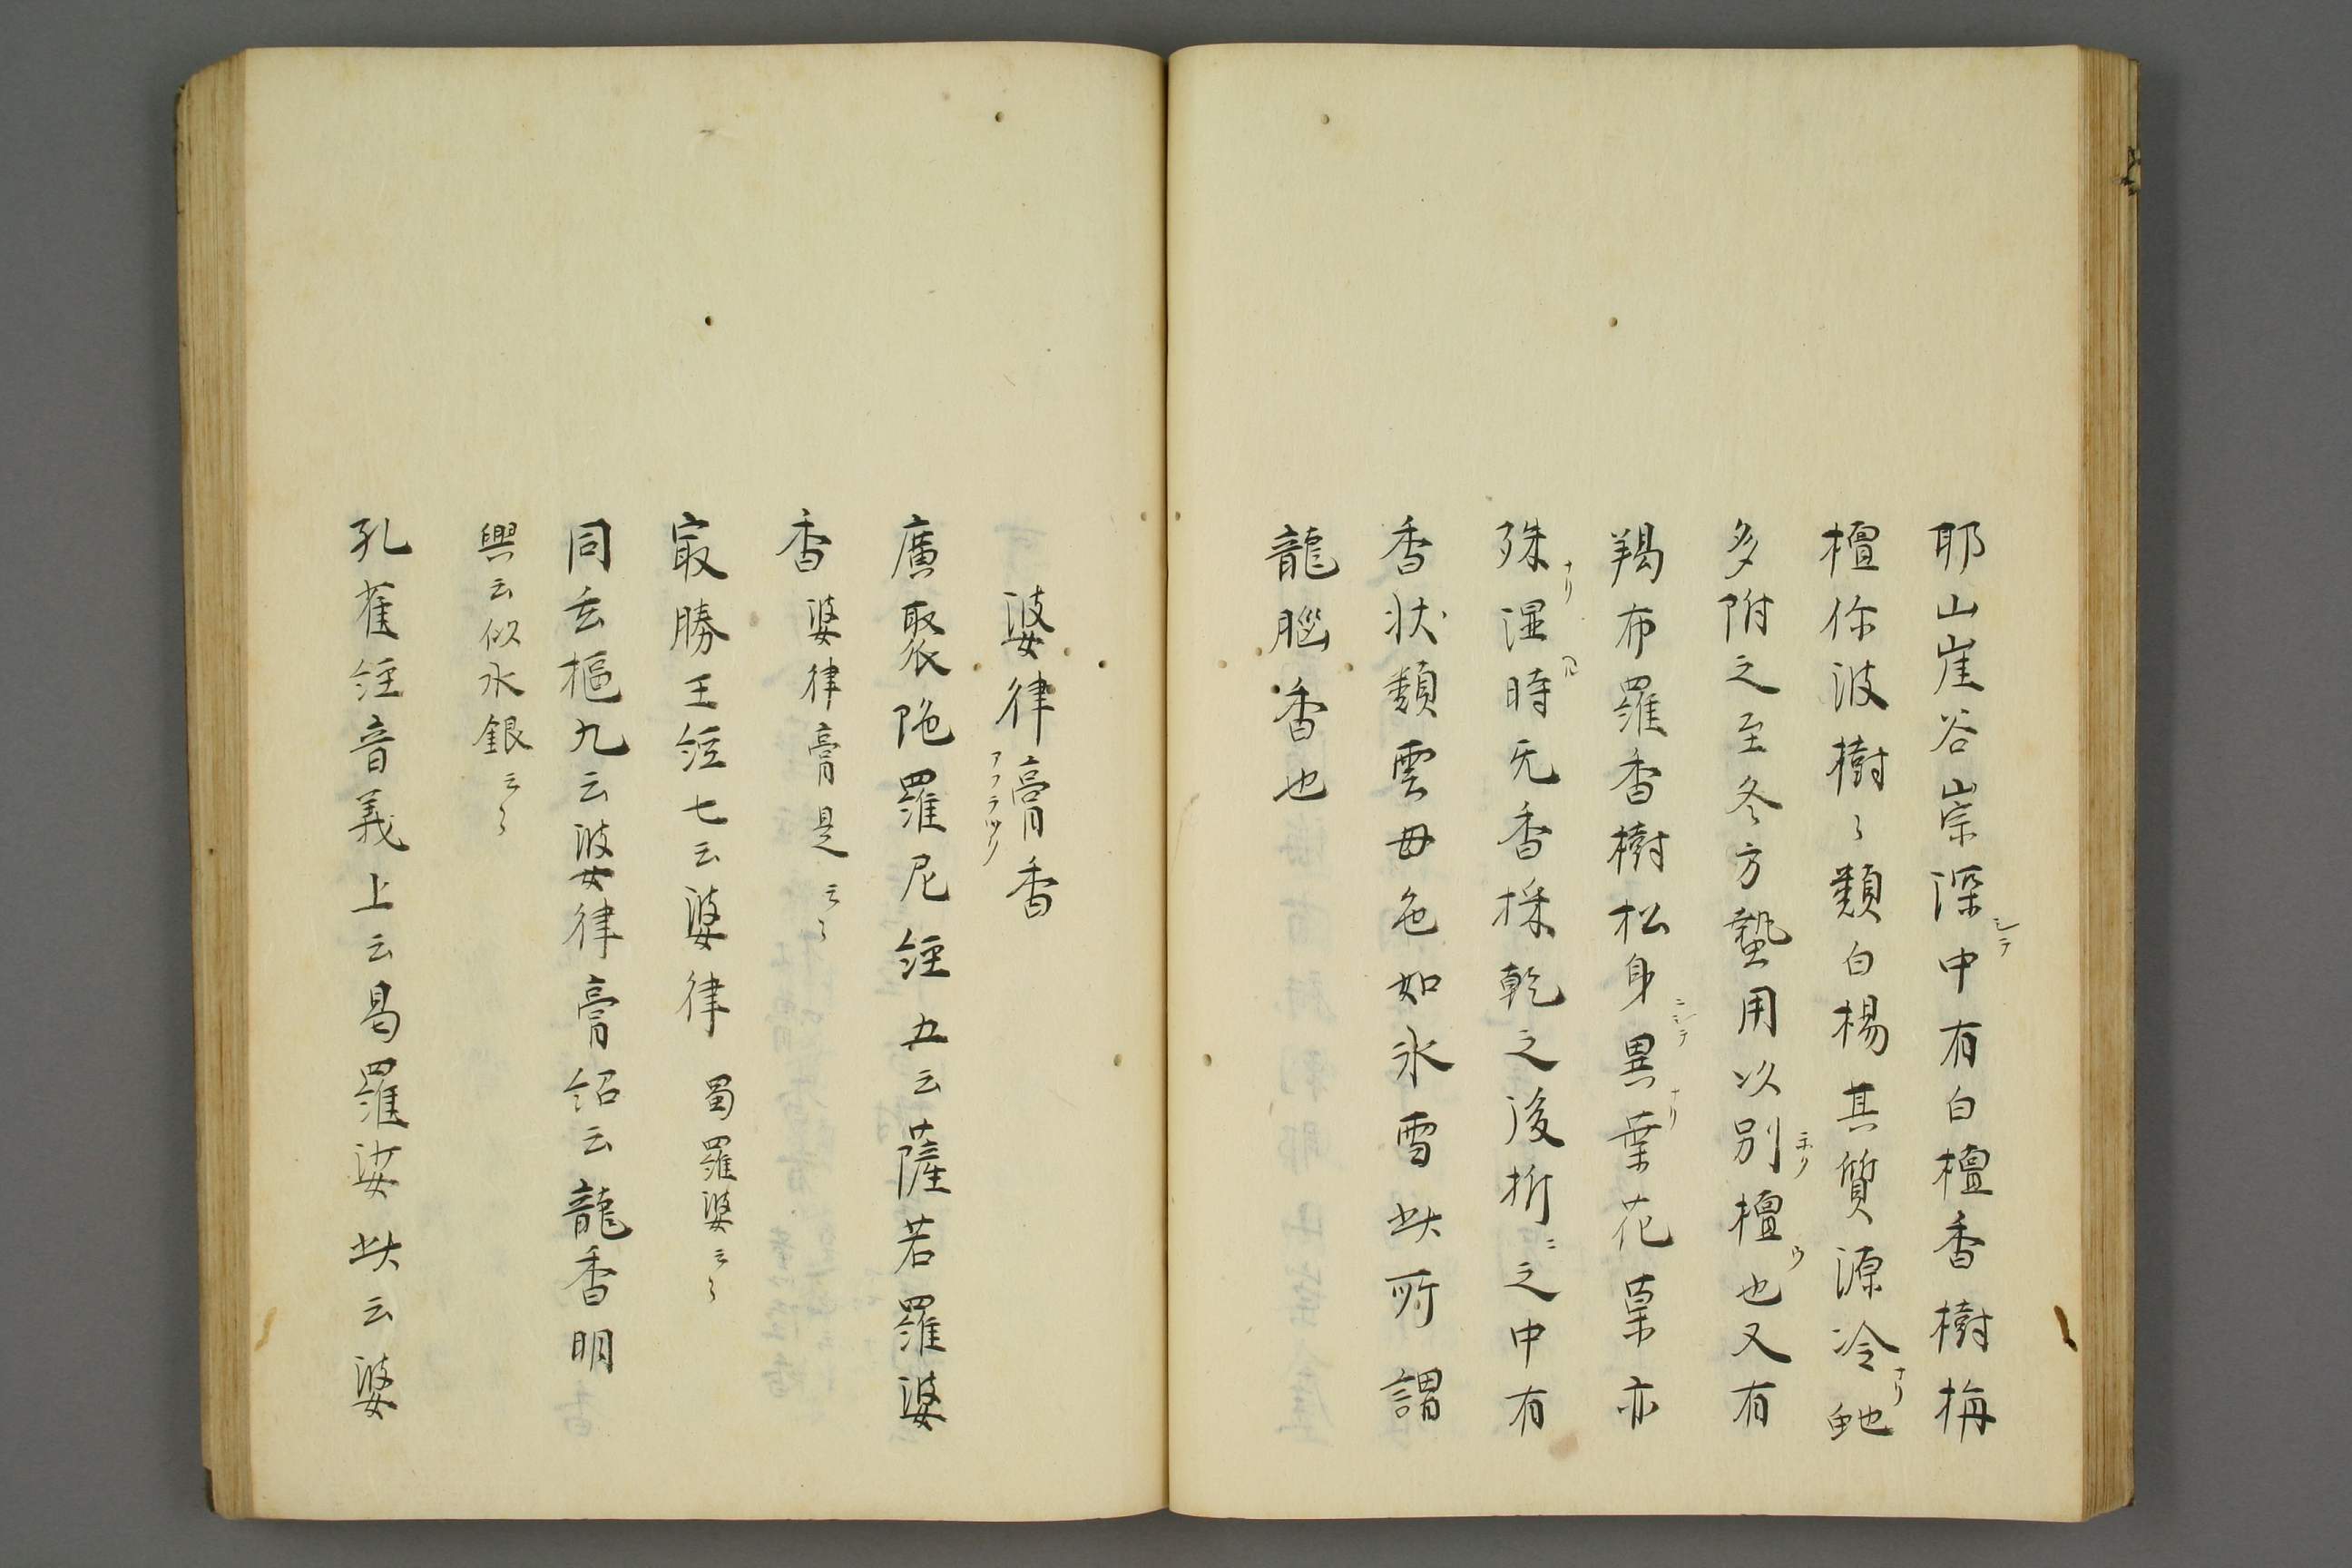 耶山崖谷崇深シテ中有白檀香樹栴
檀你波樹〻類白楊其質源冷ナリ虵
多附之至冬方蟄用以別檀也又有
羯布羅香樹松身ニシテ異ナリ葉花菓亦
殊ナリ湿時无香採乾之後折ニ之中有
香状類雲母色如氷雪此所謂
龍腦香也
婆律膏香
廣聚陁羅尼經五云薩若羅婆
香婆律膏是云〻
冣勝王經七云婆律 曷羅婆云〻
同玄樞九云婆律膏紹云龍香明
興云似水銀云〻
孔雀經音義上云曷羅娑此云婆